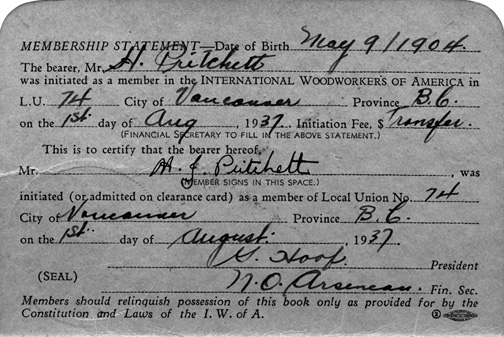 MEMBERSHIP STATEMENT—Date of Birth May 9/1904.
The bearer, Mr. H. Pritchett
was initiated as a member in the INTERNATIONAL WOODWORKERS OF AMERICA in
L.U. 74 City of Vancouver Province B.C.
on the 1st day of Aug, 1937. Initiation Fee, $ Transfer.
(FINANCIAL SECRETARY TO FILL IN THE ABOVE STATEMENT.)
This is to certify that the bearer hereof,
Mr. H. J. Pritchett, was
(MEMBER SIGNS IN THIS SPACE.)
initiated (or admitted on clearance card) as a member of Local Union No. 74
City of Vancouver Province B.C.
on the 1st. day of August. 1937.
President
(SEAL) Fin. Sec.
Members should relinquish possession of this book only as provided for by the
Constitution and Laws of the I. W. of A.